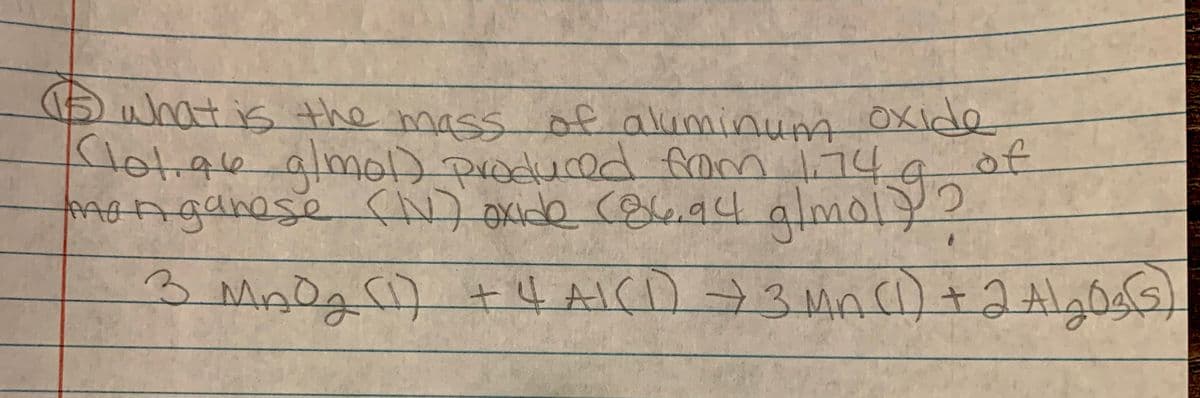 (15) what is the mass of aluminum oxide
(101.96 g/mol) produced from 1.74 g of
manganese (IV) oxide (86.94 g/mol)?
3 MnO₂ (l) + 4 Al(l) → 3 Mn (l) + 2 Al₂O₃(s)